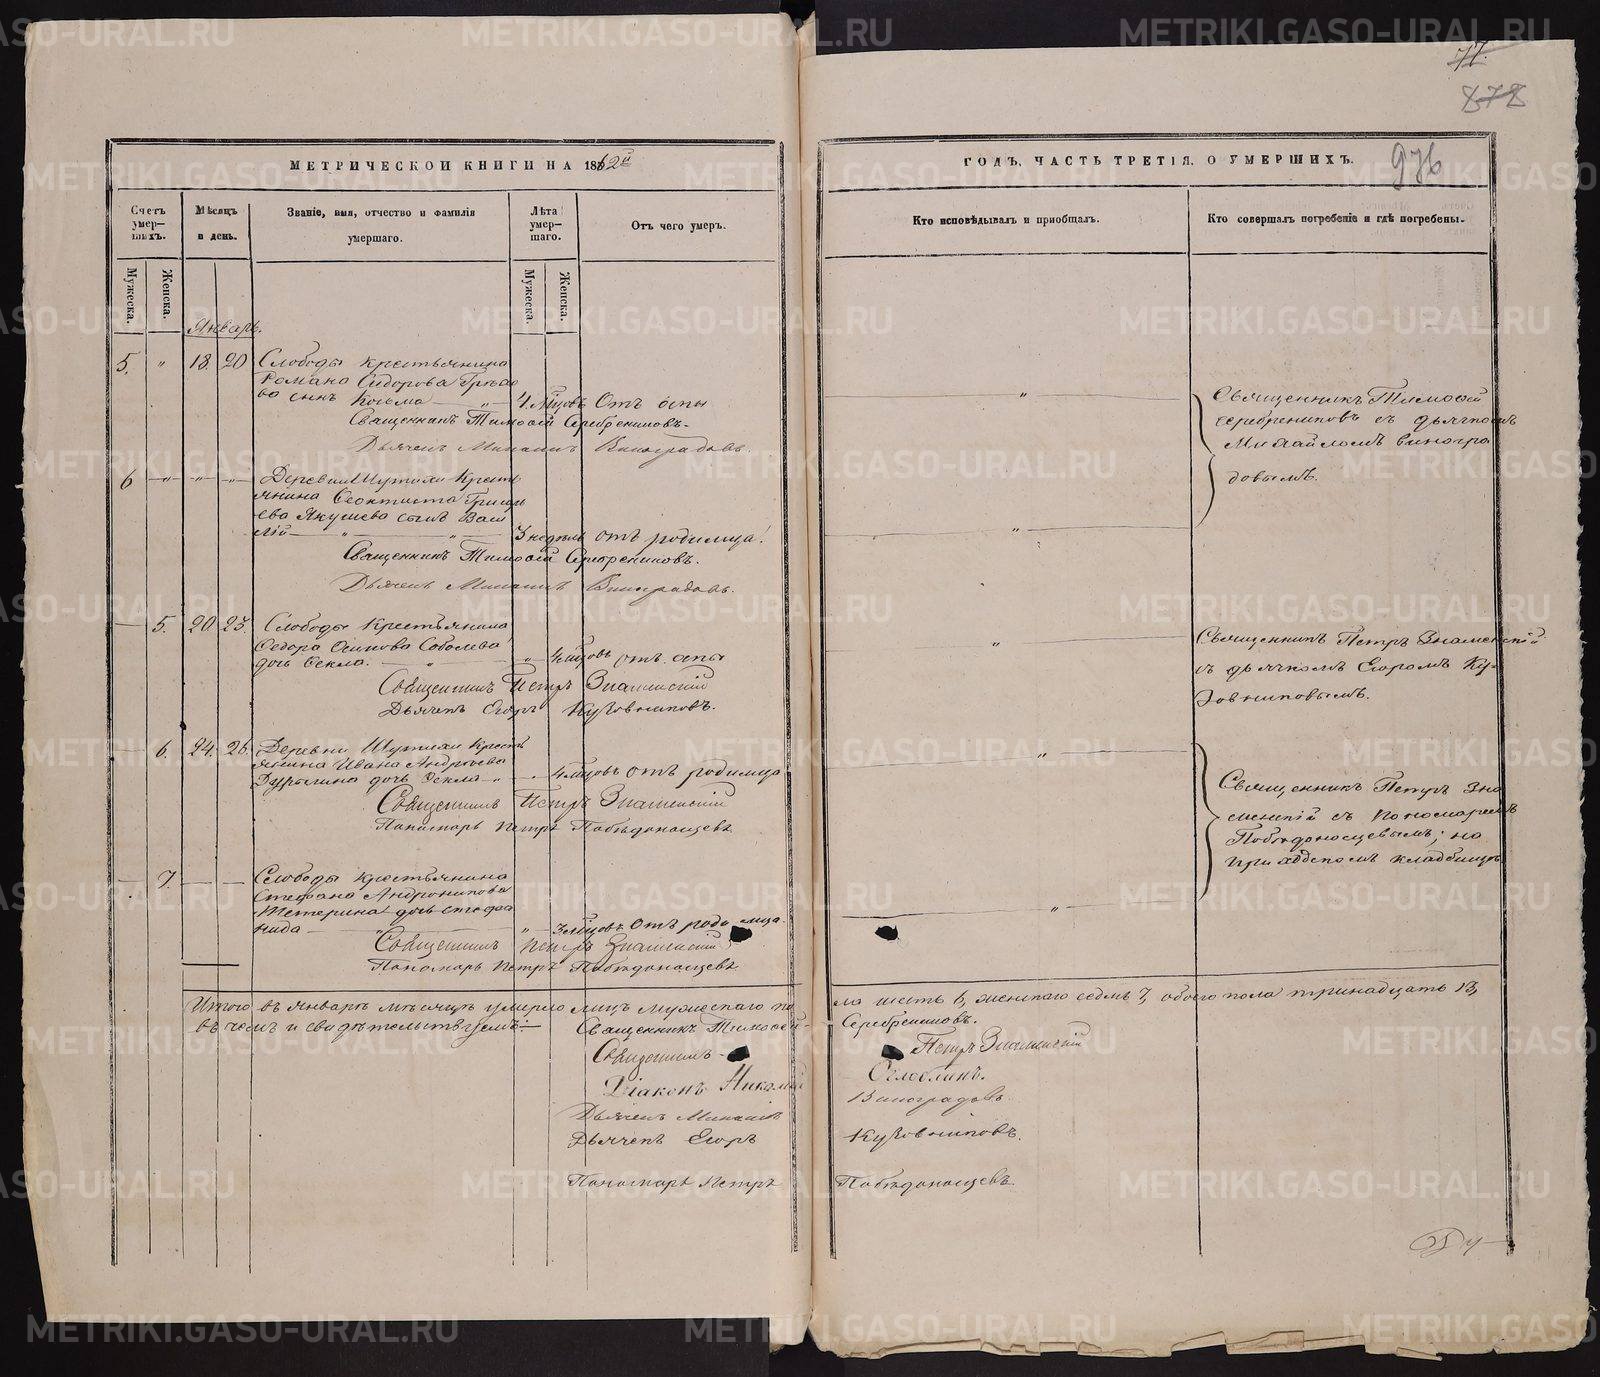 77.
878
976
МЕТРИЧЕСКОЙ КНИГИ НА 1862й
ГОДЪ, ЧАСТЬ ТРЕТІЯ, О УМЕРШИХЪ.
Счетъ умер-шихъ.
Мѣсяцъ и день.
Званіе, имя, отчество и фамилія умершаго.
Лѣта умер-шаго.
Отъ чего умеръ.
Кто исповѣдывалъ и пріобщалъ.
Кто совершалъ погребеніе и гдѣ погребены.
Мужеска.
Женска.
Мужеска.
Женска.
Январь.
5. " 18. 20 Слободы крестьянина
Романа Сидорова
ва сынъ Козьма " 4 мѣсцовъ Отъ оспы
Священникъ Тимоѳей Серебрениковъ.
Дьячекъ Михаилъ Виноградовъ.
" Священникъ Тимоѳей
Серебрениковъ съ дьячкомъ
Михаиломъ Виногра
довымъ.
6 " " " Деревни Шутихи Кресть
янина Ѳеоктиста Григорь
ева Якушева сынъ Васи
лій " " 3 недѣль отъ родимца.
Священникъ Тимоѳей Серебрениковъ.
Дьячекъ Михаилъ Виноградовъ.
"
5. 20. 23. Слободы Крестьянина
Ѳедора Осипова Соболева
дочь Ѳекла. " " 4 мѣсцовъ отъ оспы
Священникъ Петръ Знаменскій
Дьячекъ Егоръ Кузовниковъ.
" Священникъ Петръ Знаменскій
съ дьячкомъ Егоромъ Ку-
зовниковымъ.
6. 24. 26. Деревни Шутихи Кресть
янина Ивана Андреева
Дурыгина дочь Ѳекла " 4 мѣсцовъ отъ родимца
Священникъ Петръ Знаменскій
Пономарь Петръ Побѣдоносцевъ
" Священникъ Петръ Зна
менскій съ Пономаремъ
Побѣдоносцевымъ; на
приходскомъ кладбищѣ
7. Слободы крестьянина
Стефана Андроникова
Тетерина дочь Стефа
нида " " 3 мѣсцовъ отъ родимца
Священникъ Петръ Знаменскій
Пономарь Петръ Побѣдоносцевъ
"
Итого въ Январѣ мѣсяцѣ умерло лицъ мужескаго по
ла шесть 6, женскаго седмь 7, обоего пола тринадцать 13,
въ чемъ и свидѣтельствуемъ:
Священникъ Тимоѳей Серебрениковъ.
Священникъ Петръ Знаменскій
Діаконъ Николай Оглоблинъ.
Дьячекъ Михаилъ Виноградовъ
Дьячекъ Егоръ Кузовниковъ.
Пономарь Петръ Побѣдоносцевъ.
METRIKI.GASO-URAL.RU